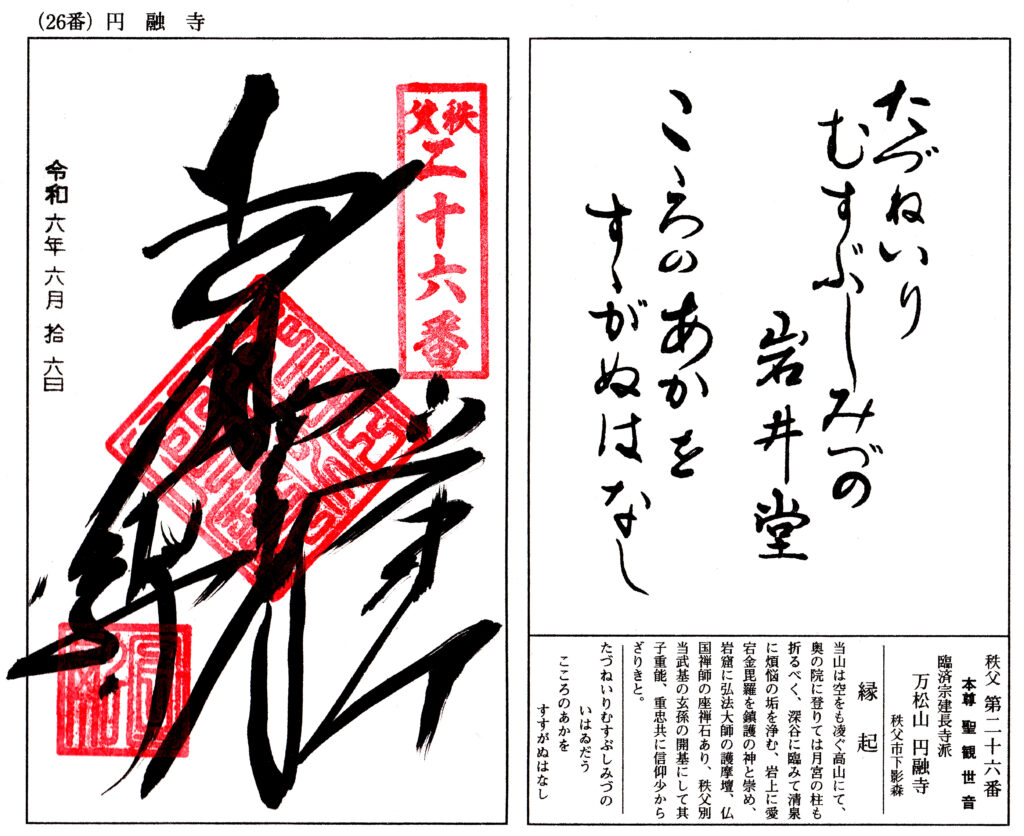 (26番) 円融寺
たづねいり
むすぶしみづの
岩井堂
こゝろのあかを
すゝがぬはなし
秩父 第二十六番
本尊 聖観世音
臨済宗建長寺派
万松山 円融寺
秩父市下影森
縁起
当山は空をも凌ぐ高山にて、
奥の院に登りては月宮の桂も
折るべく、深谷に臨みて清泉
に煩悩の垢を浄む、岩上に愛
宕金毘羅を鎮護の神と崇め、
岩窟に弘法大師の護摩壇、仏
国禅師の座禅石あり、秩父別
当武基の玄孫の開基にして其
子重能、重忠共に信仰少から
ざりきと。
たづねいりむすぶしみづの
いはゐだう
こころのあかを
すすがぬはなし
秩父
二十六番
令和六年六月拾六日